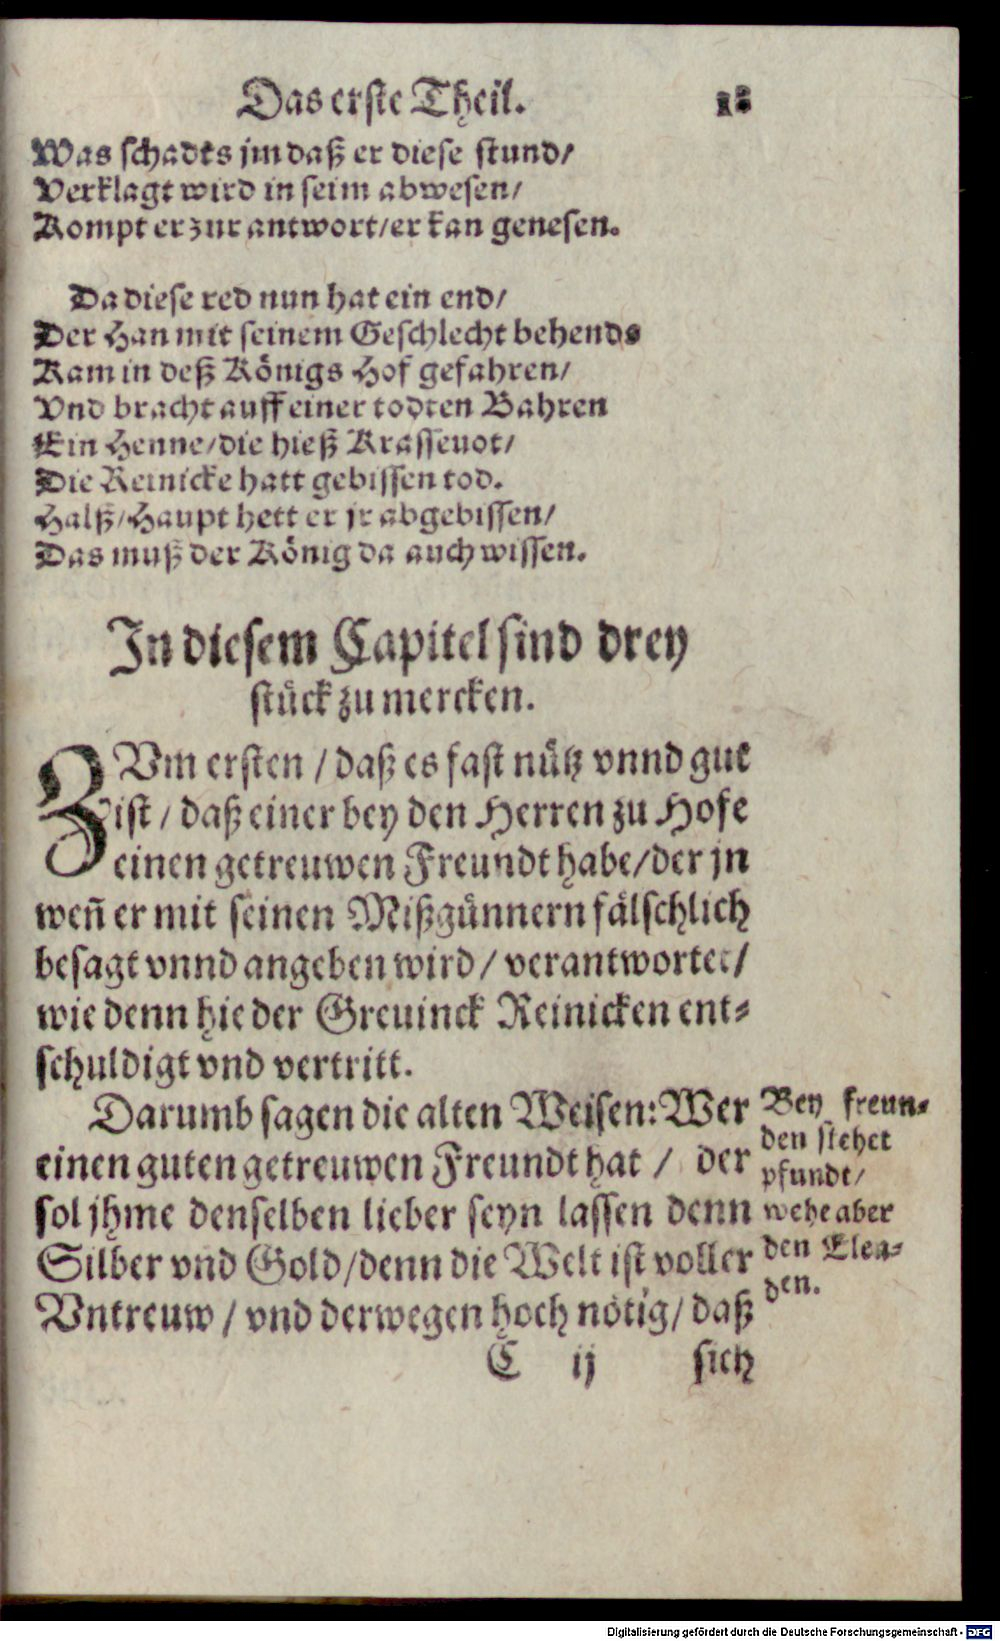 Das erste Theil.
Was schadts jm daß er diese stund/
Verklagt wird in seim abwesen/
Kompt er zur antwort/er kan genesen.
Da diese red nun hat ein end/
Der Han mit seinem Geschlecht behends
Kam in deß Königs Hof gefahren/
Vnd bracht auff einer todten Bahren
Ein Henne/die hieß Krassevot/
Die Reinicke hatt gebissen tod.
Halß/Haupt hett er jr abgebissen/
Das muß der König da auch wissen.
In diesem Capitel sind drey
stück zu mercken.
ZVm ersten / daß es fast nütz vnnd gut
ist / daß einer bey den Herren zu Hofe
einen getreuwen Freundt habe/der jn
weñ er mit seinen Mißgünnern fälschlich
besagt vnnd angeben wird/ verantwortet/
wie denn hie der Greuinck Reinicken ent-
schuldigt vnd vertritt.
Darumb sagen die alten Weisen: Wer
einen guten getreuwen Freundt hat / der
sol jhme denselben lieber seyn lassen denn
Silber vnd Gold/denn die Welt ist voller
Vntreuw / vnd derwegen hoch nötig/ daß
Bey freun-
den stehet
pfundt/
wehe aber
den Elen-
den.
C ij sich
Digitalisierung gefördert durch die Deutsche Forschungsgemeinschaft - DFG